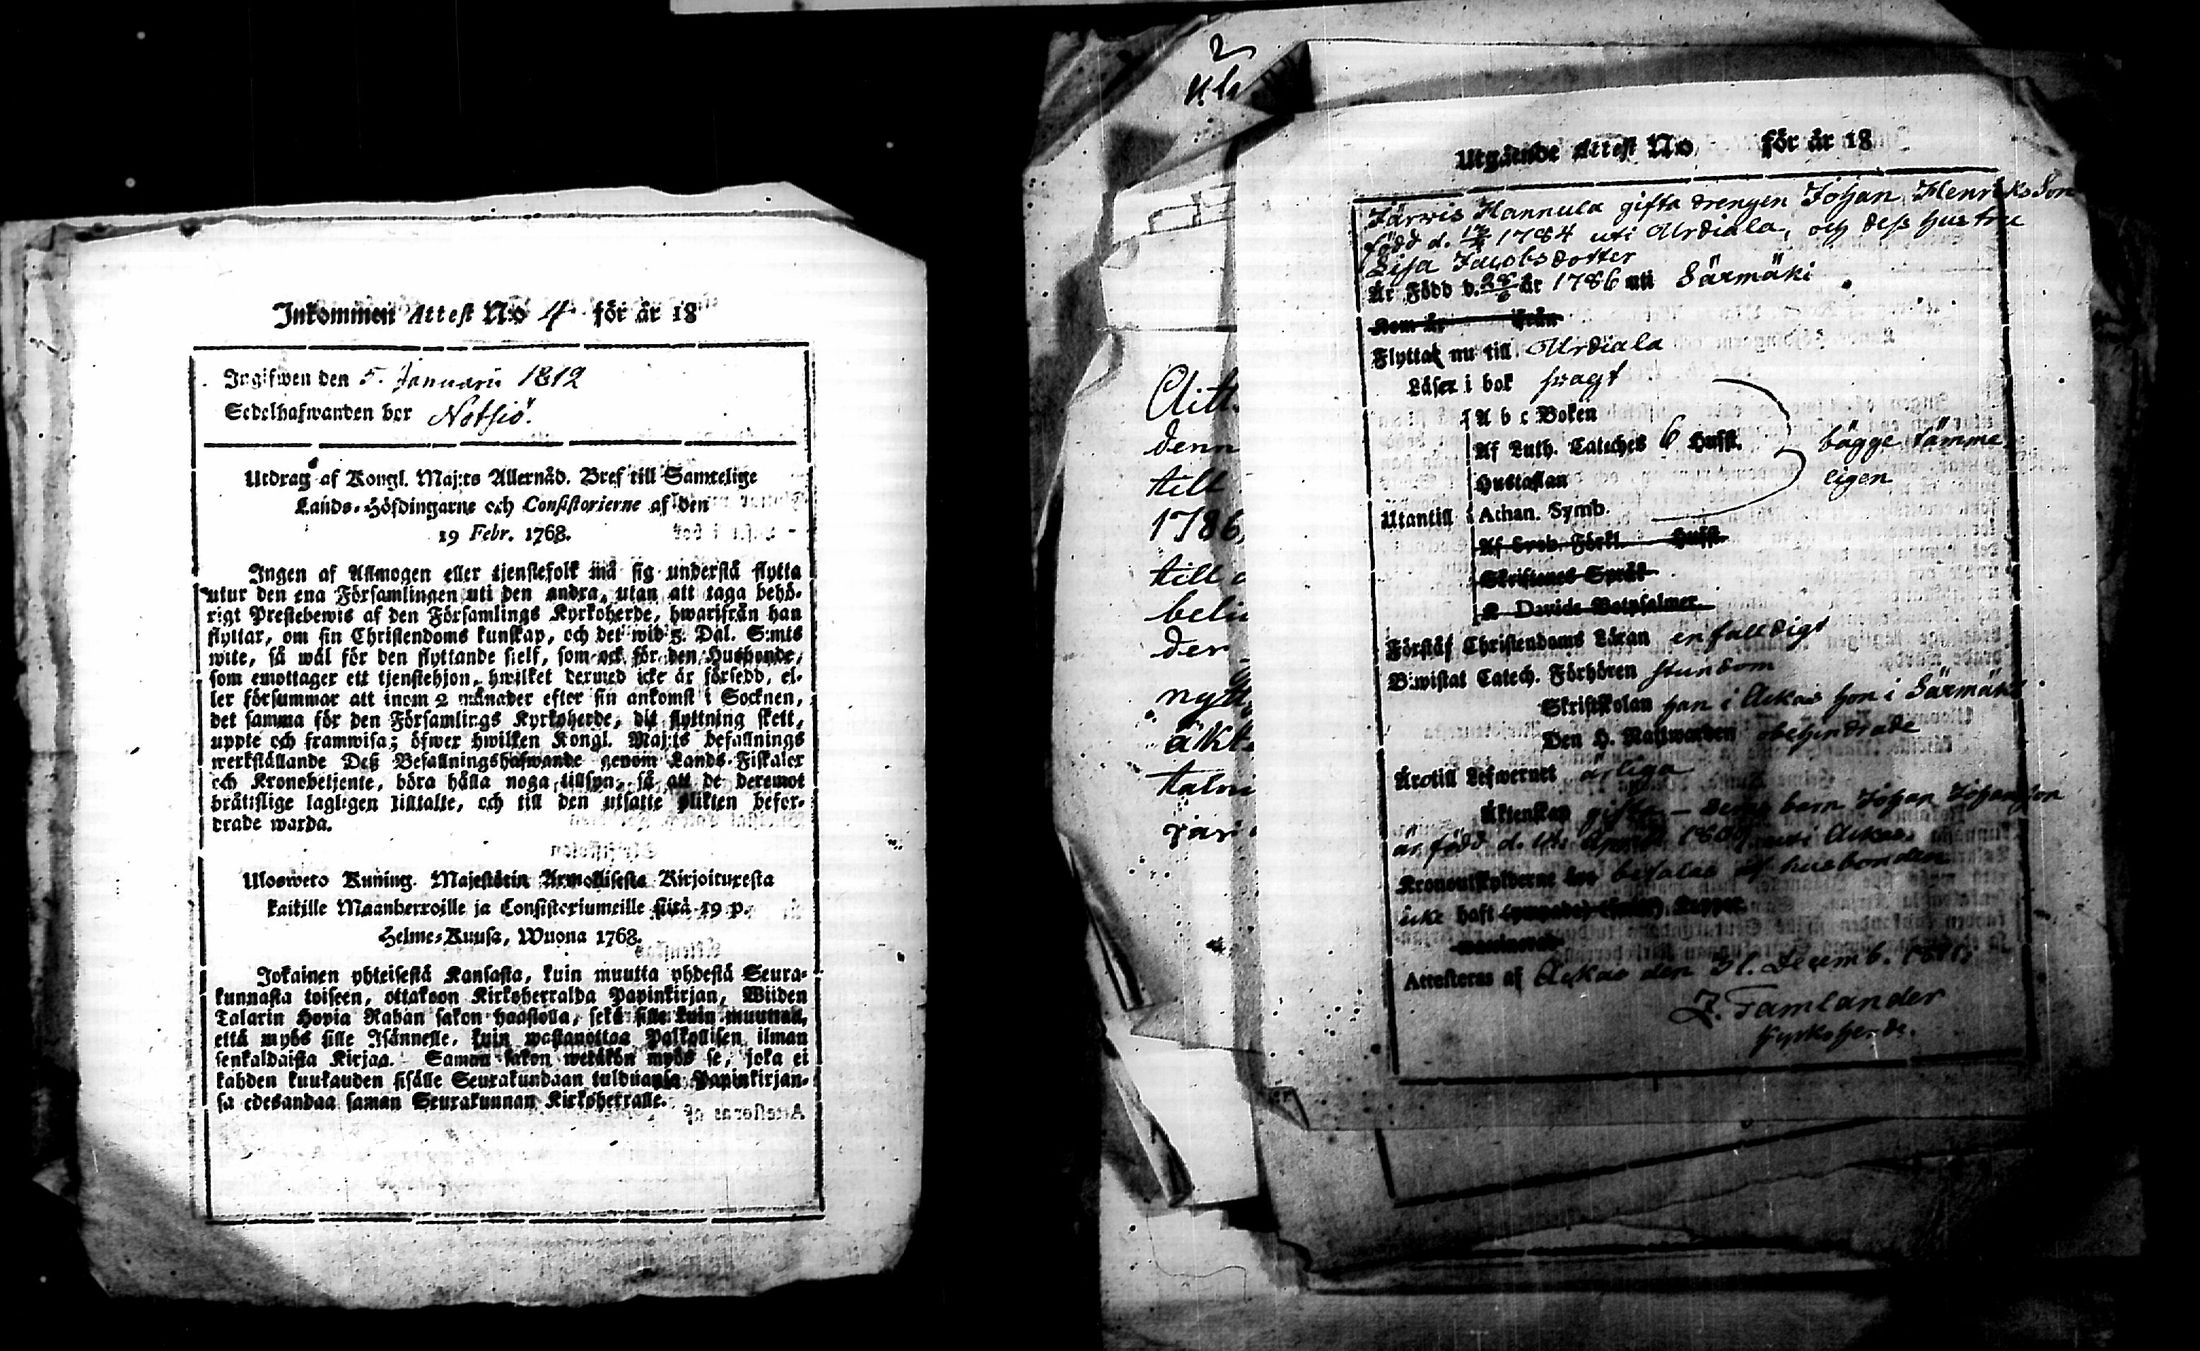 Inkommen Attest No 4 för år 18
Ingifwen den 5. Januarii 1812
Sedelhafwanden bor Notsiö.
Utdrag af Kongl. Maj:ts Allernåd. Bref till Samtelige
Lands-Höfdingarne och Consistorierne af den
19 Febr. 1768.
Ingen af Allmogen eller tjenstefolk må sig understå flytta
utur den ena Församlingen uti den andra, utan att taga behö-
rigt Prestebewis af den Församlings Kyrkoherde, hwarifrån han
flyttar, om sin Christendoms kunskap, och det wid 5. Dal. S:mts
wite, så wäl för den flyttande sielf, som ock för den Husbonde,
som emottager ett tjenstehjon, hwilket dermed icke är försedd, el-
ler försummar att inom 2 månader efter sin ankomst i Socknen,
det samma för den Församlings Kyrkoherde, dit flyttning skett,
uppte och framwisa; öfwer hwilken Kongl. Maj:ts befallnings
werkställande Deß Befallningshafwande genom Lands-Fiskaler
och Kronobetjente, böra hålla noga tillsyn, så att de deremot
brätislige lagligen tilltalte, och till den utsatte plikten befor-
drade warda.
Uloswero Kuning. Majestätin Armollisesta Kirjoituxesta
kaikille Maanherroille ja Consistoriumeille siitä 19 p.
Helme-Kuusa, Wuona 1768.
Jokainen yhteisestä Kansasta, kuin muutta yhdestä Seura-
kunnasta toiseen, ottakoon Kirkoherralda Papinkirjan, Wiiden
Talarin Hopia Rahan sakon haastolla, sekä sille kuin muuttaa,
että myös sille Isännelle, kuin wastanottaa Palkollisen ilman
senkaldaista Kirjaa. Saman sakon wetäkön myös se, joka ei
kahden kuukauden sisälle Seurakundaan tulduansa Papinkirjan-
sa edesandaa saman Seurakunnan Kirkoherralle.
2
Aitt
denn
till
1786,
till
der
nytt
äkt
Utgående Attest No för år 18
Järvis Hannula gifta drengen Johan Henriksson
född d. 1784 uti Urdiala, och dess hustru
Lisa Jacobsdotter
Är Född d. 28/6 år 1786 uti Särmäki
Kom år från
Flyttat nu till Urdiala
Läser i bok swagt
A b c Boken
Af Luth. Cateches 6 Hufst. bägge tämme
Hustaflan ligen
Utantill Athan. Symb.
Af Sveb. Förkl. Hufst.
Skriftenes Språk
K Davids Botpsalmer.
Förstår Christendoms Läran enfalldigt
B:wistat Catech. Förhören stundom
Skriftskolan han i Ackas hon i Särmäki
Den H. Nattwarden obehindrade
Är till Lefwernet ärliga
Äktenskap gifta — deras barn Johan Johansson
är född d. April uti Ackas.
Kronoutskylderne betalas af husbonden
icke haft Koppor
Attesteras af Ackas den 31. Decemb. 1811.
J. Tamlander
Kyrkoherde.